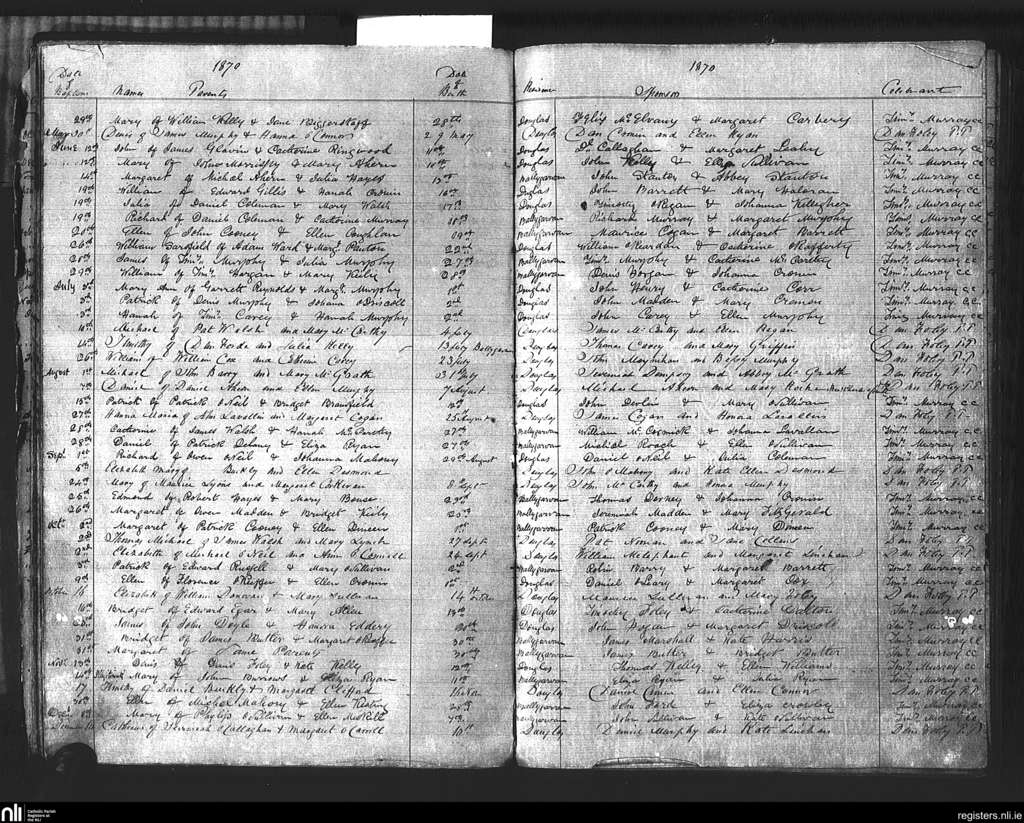 1870
Date of Baptism Names Parents Date of Birth
29th Mary of William Kelly & Jane Biggerstaff 28th
May 30th Denis of James Murphy & Hanna O'Connor 29 May
June 12th John of James Glavin & Catherine Ringwood
12th Mary of John Morrissey & Mary Ahern 10th
14th Margaret of Michal Ahern & Julia Hayes 13th
19th William of Edward Gillis & Hanah Cronin 16th
19th Julia of Daniel Coleman & Mary Walsh 17th
19th Richard of Daniel Coleman & Catherine Murray 18th
20th Ellen of John Cooney & Ellen Coghlan 19th
26th William of Adam Ward & Margt. 22nd
28th James of Timy. Murphy & Julia Murphy 27th
29th William of Timy. Horgan & Mary Kiely 28th
July 3rd Mary Ann of Garrett Reynolds & Margt. Murphy 1st
3rd Patrick of Denis Murphy & Johana Driscoll 2nd
3rd Hanah of Timy. Carey & Hanah Murphy 2nd
10th Michael of Pat Walsh and Mary McCarthy 4 July
14th Timothy of Dan Forde and Julia Kelly 13 July
26th William of William Cox and Carey 23 July
August 1st Michael of John Barry and Mary McGrath 31st July
7th Daniel of Daniel Ahern and Ellen Murphy 7 August
15th Patrick of Patrick O'Neil & Bridget
27th Hanna Maria of John Lavallin and Margaret Cogan
28th Catherine of James Walsh & Hanah McCarthy 27th
28th Daniel of Patrick Delany & Eliza Ryan 27th
Sept. 1st Richard of Owen O'Neil & Johanna Mahony 29th August
5th Elizabeth Mary of Buckly and Ellen Desmond
24th Mary of Maurice Lyons and Margaret 8 Sept
25th Edmond of Robert Hayes & Mary 23rd
26th Margaret of Owen Madden & Bridget Kiely 25th
Oct. 2nd Margaret of Patrick Cooney & Ellen Dineen 1st
2nd Thomas Michael of James Walsh and Mary Lynch 27 Sept
2nd Elizabeth of Michael O'Neil and Ann O'Connell 24 Sept
3rd Patrick of Edward Russell & Mary O'Sullivan 2nd
9th Ellen of Florence & Ellen Cronin 1st
16 Elizabeth of William Donovan & Mary Sullivan 14th October
16th Bridget of Edward Egar & Mary 13th
James of John Doyle & Honora Eddery
31st Bridget of James Butler & Margaret 30th
31st Margaret of Same Parents 30th
Novr. 13th Denis of Denis Foley & Kate Kelly 12th
14th Mary of John Burrows & Eliza Ryan 11th
17 Timothy of Daniel Buckly & Margaret Clifford 16 Nov
Ellen of Michael Mahony & Ellen Keating 25th
Mary of Philip O'Sullivan & Ellen
Catherine of Jeremiah O'Callaghan & Margaret O'Connell 10th
1870
Residence Sponsors Celebrant
Douglas McElvany & Margaret Carbery Timy. Murray cc
Douglas Dan Comin and Ellen Ryan Dan Foley P.P.
Douglas Callaghan & Margaret Leahy Timy. Murray cc
Douglas John Kelly & Eliza Sullivan Timy. Murray cc
Ballygarvan John Stanton & Abbey Stanton Timy. Murray cc
Douglas John Barrett & Mary Haloran Timy. Murray cc
Douglas Timothy Regan & Johanna Kellegher Timy. Murray cc
Douglas Richard Murray & Margaret Murphy Timy. Murray cc
Ballygarvan Maurice Cogan & Margaret Barrett Timy. Murray cc
Douglas William Reardon & Catherine Rafferty Timy. Murray cc
Ballygarvan Timy. Murphy & Catherine McCarthy Timy. Murray cc
Ballygarvan Denis Horgan & Johanna Cronin Timy. Murray cc
Douglas John Henry & Catherine Corr Timy. Murray cc
Douglas John Madden & Mary Cronan Timy. Murray cc
Douglas John Carey & Ellen Murphy Timy. Murray cc
Douglas James McCarthy and Ellen Regan Dan Foley P.P.
Douglas Thomas Carey and Mary Griffin Dan Foley P.P.
Douglas John Moynihan and Betsy Murphy Dan Foley P.P.
Douglas Jeremiah Dempsey and Abbey McGrath Dan Foley P.P.
Douglas Michael Ahern and Mary Roche Dan Foley P.P.
Douglas John Devlin & Mary O'Sullivan Timy. Murray cc
Douglas James Cogan and Honora Lavallin Dan Foley P.P.
Ballygarvan William McCormick & Johanna Lavallan Timy. Murray cc
Ballygarvan Michael Roach & Ellen O'Sullivan Timy. Murray cc
Douglas Daniel O'Neil & Julia Coleman Timy. Murray cc
Douglas John O'Mahony and Kate Ellen Desmond Dan Foley P.P.
Douglas John McCarthy and Honora Murphy Dan Foley P.P.
Ballygarvan Thomas Dorney & Johanna Cronin Timy. Murray cc
Ballygarvan Jeremiah Madden & Mary Fitzgerald Timy. Murray cc
Ballygarvan Patrick Cooney & Mary Dineen Timy. Murray
Douglas Pat Noonan and Jane Collins Dan Foley P.P.
Douglas William Melephant and Margaret Linehan Dan Foley P.P.
Ballygarvan Robin Barry & Margaret Barrett Timy. Murray cc
Douglas Daniel O'Leary & Margaret Cox Timy. Murray cc
Douglas Maurice Sullivan and Mary Foley Dan Foley P.P.
Douglas Timothy Foley & Catherine Timy. Murray cc
Douglas John Hogan & Margaret Driscoll Timy. Murray cc
Ballygarvan James Marshall & Kate Harris Timy. Murray cc
Ballygarvan James Butler & Bridget Butler Timy. Murray cc
Douglas Thomas Kelley & Ellen Williams Timy. Murray cc
Ballygarvan Eliza Ryan & Julia Ryan Timy. Murray cc
Douglas Daniel and Ellen Connor Dan Foley P.P.
Ballygarvan John Ford & Eliza Crowley Timy. Murray cc
Ballygarvan John Sullivan & Kate O'Sullivan Timy. Murray cc
Douglas Daniel Murphy and Kate Linehan Dan Foley P.P.
nli
Catholic Parish
Registers at
the NLI
registers.nli.ie